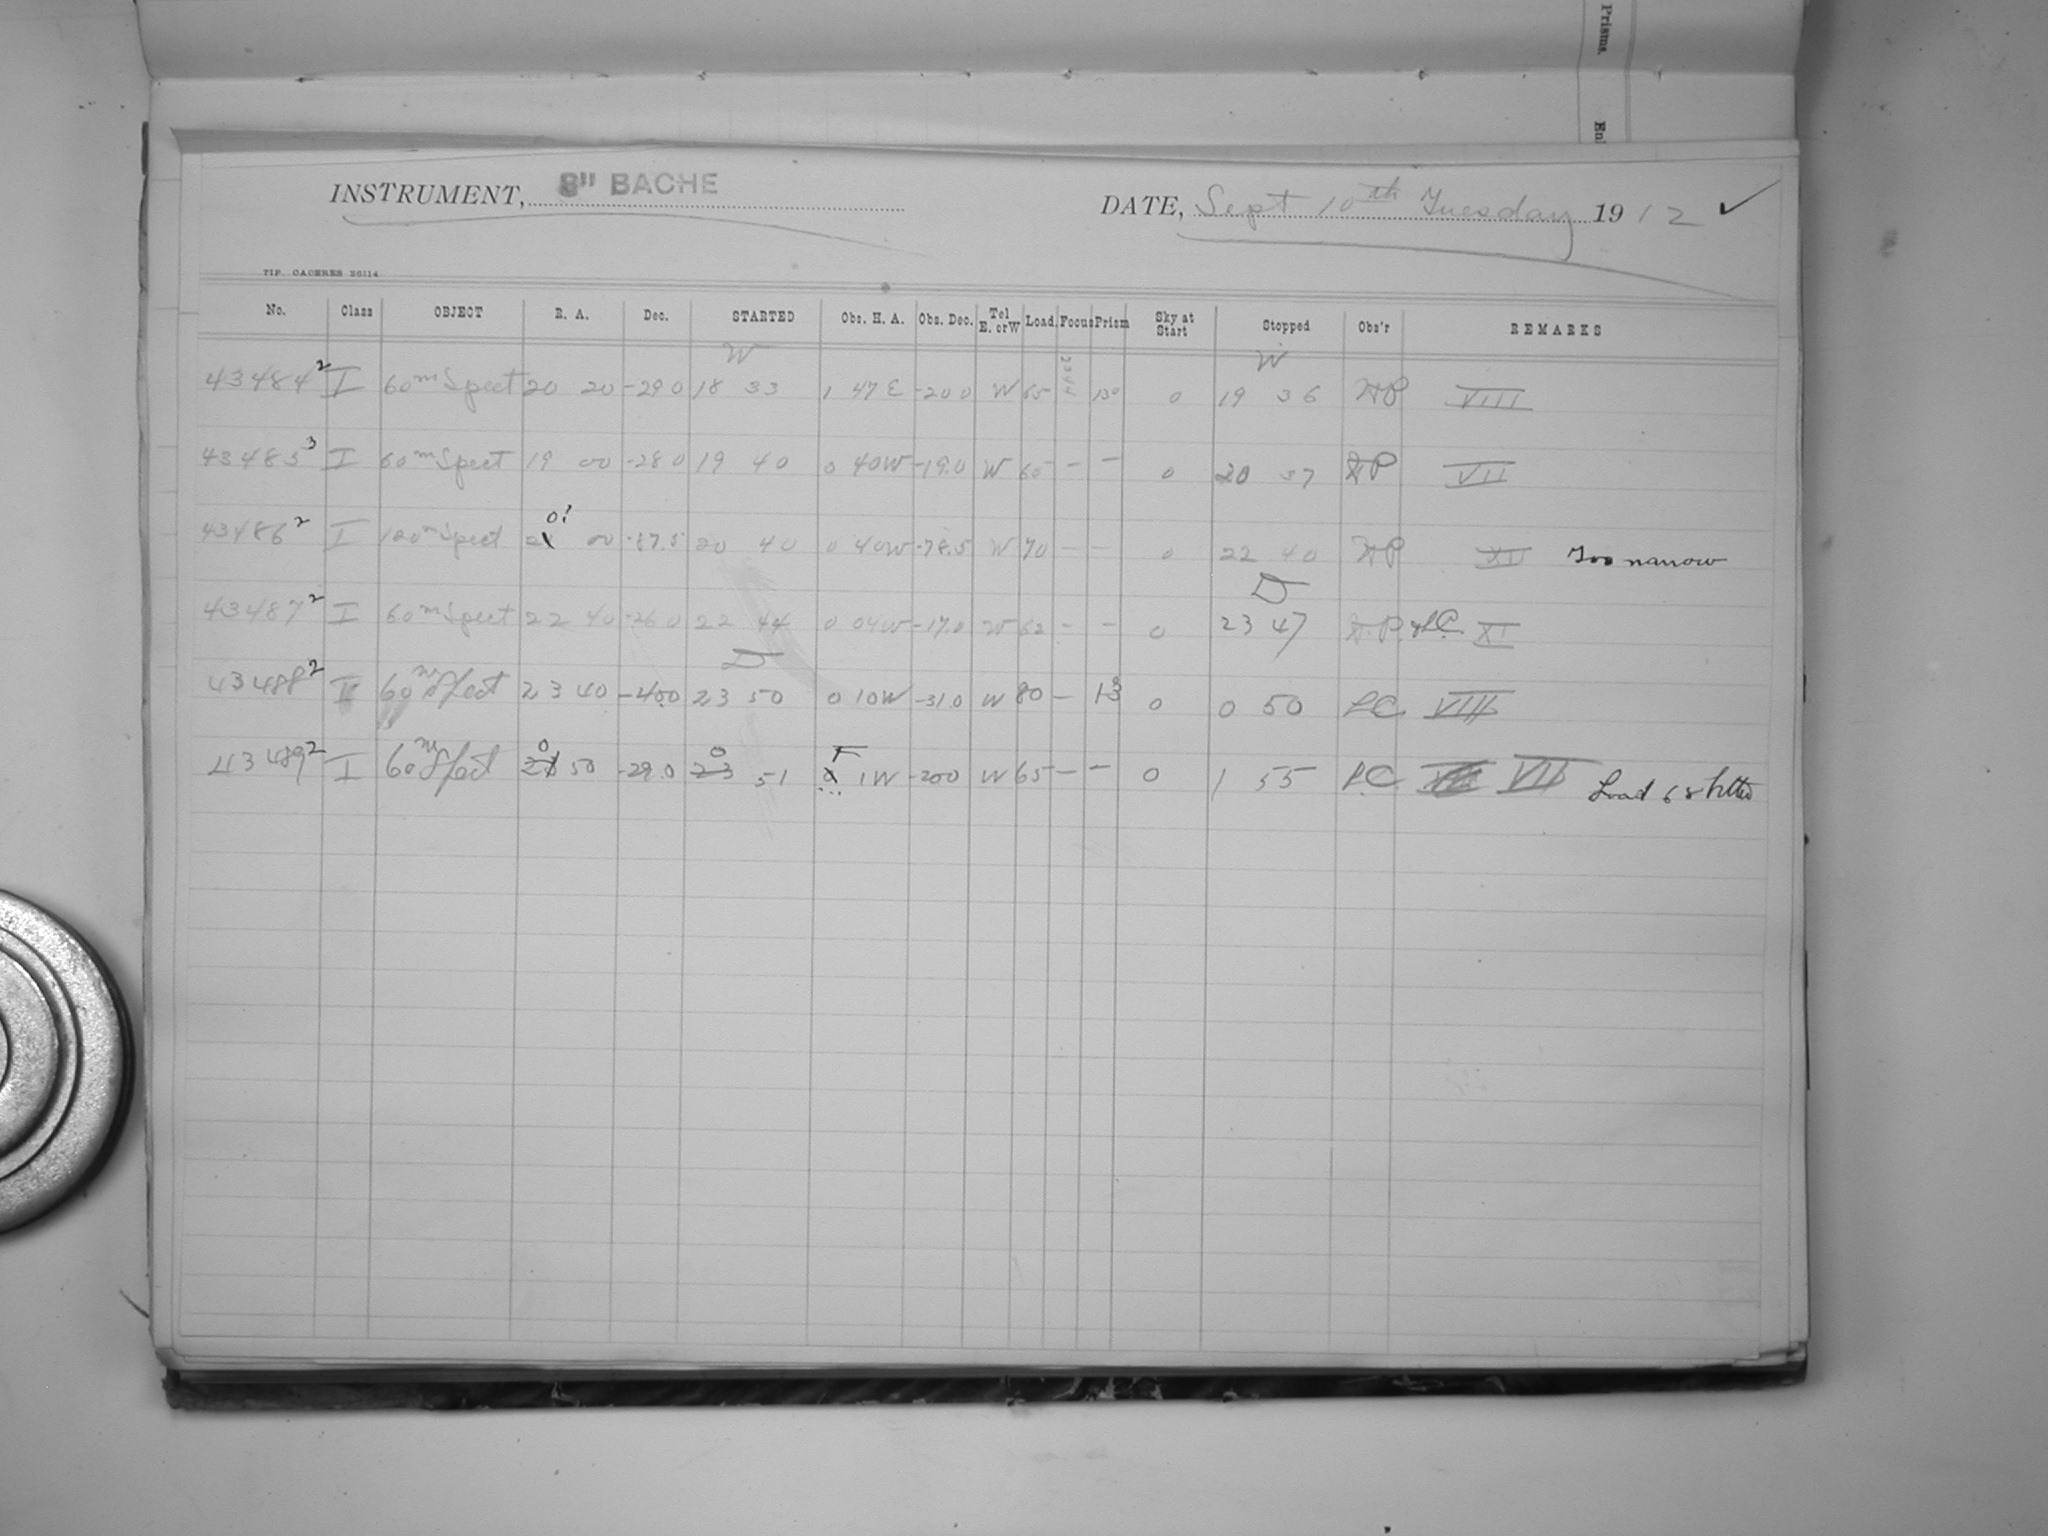 Prisms.
En
INSTRUMENT, 8" BACHE DATE, Sept 10th Tuesday 1912 ✓
TIP. CACERES 26114
No. Class OBJECT R. A. Dec. STARTED Obs. H. A. Obs. Dec. Tel E. or W Load. Focus Prism Sky at Start Stopped Obs'r REMARKS
W W
43484 2 I 60m Spect 20 20 -29.0 18 33 1 47 E -20.0 W 65 130 0 19 36 VIII
43485 3 I 60m Spect 19 00 -28.0 19 40 0 40W -19.0 W 65 - - 0 20 37 VII
43486 2 I 120m Spect 00 -87.5 20 40 0 40W -78.5 W 70 - - 0 22 40 Too narrow
D
43487 2 I 60m Spect 22 40 -26.0 22 44 0 04W -17.0 W 62 - - 0 23 47 XI
D
43488 2 I 60m Spect 23 40 -40.0 23 50 0 10W -31.0 W 80 - 13 0 0 50 LC VIII
43489 2 I 60m Spect 0 50 -29.0 0 51 1W -20.0 W 65 - - 0 1 55 LC VII Load 68 better